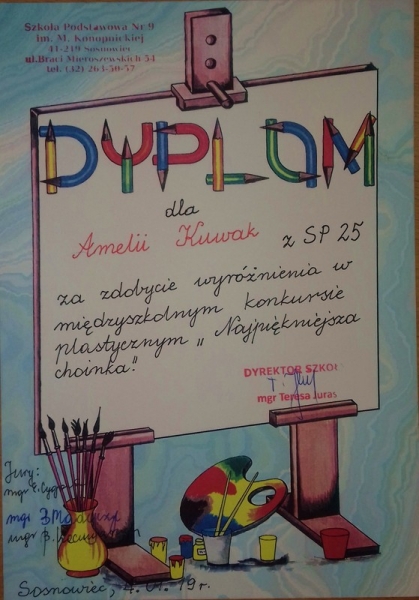 Szkoła Podstawowa Nr 9
im. M. Konopnickiej
41-219 Sosnowiec
ul. Braci Mieroszewskich 54
tel. (32) 263-50-57
DYPLOM
dla
Amelii Kuwak z SP 25
za zdobycie wyróżnienia w
międzyszkolnym konkursie
plastycznym „Najpiękniejsza
choinka".
DYREKTOR SZKOŁ
mgr Teresa Juras
Jury:
mgr
mgr
mgr B.
Sosnowiec, 4.01.19r.